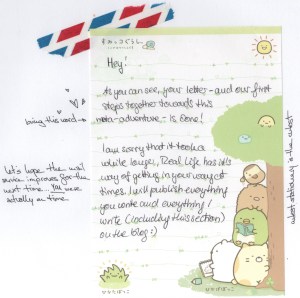 Hey!
As you can see, your letter - and our first
steps together towards this
adventure - is done!
I am sorry that it took a
while longer, Real Life has its
way of getting in your way at
times. I will publish everything
you wrote and everything I
write (including this section)
on the blog :)
being this word →
Let's hope the mail
service improves for the
next time... You were
actually on time.
what stationary is the cutest